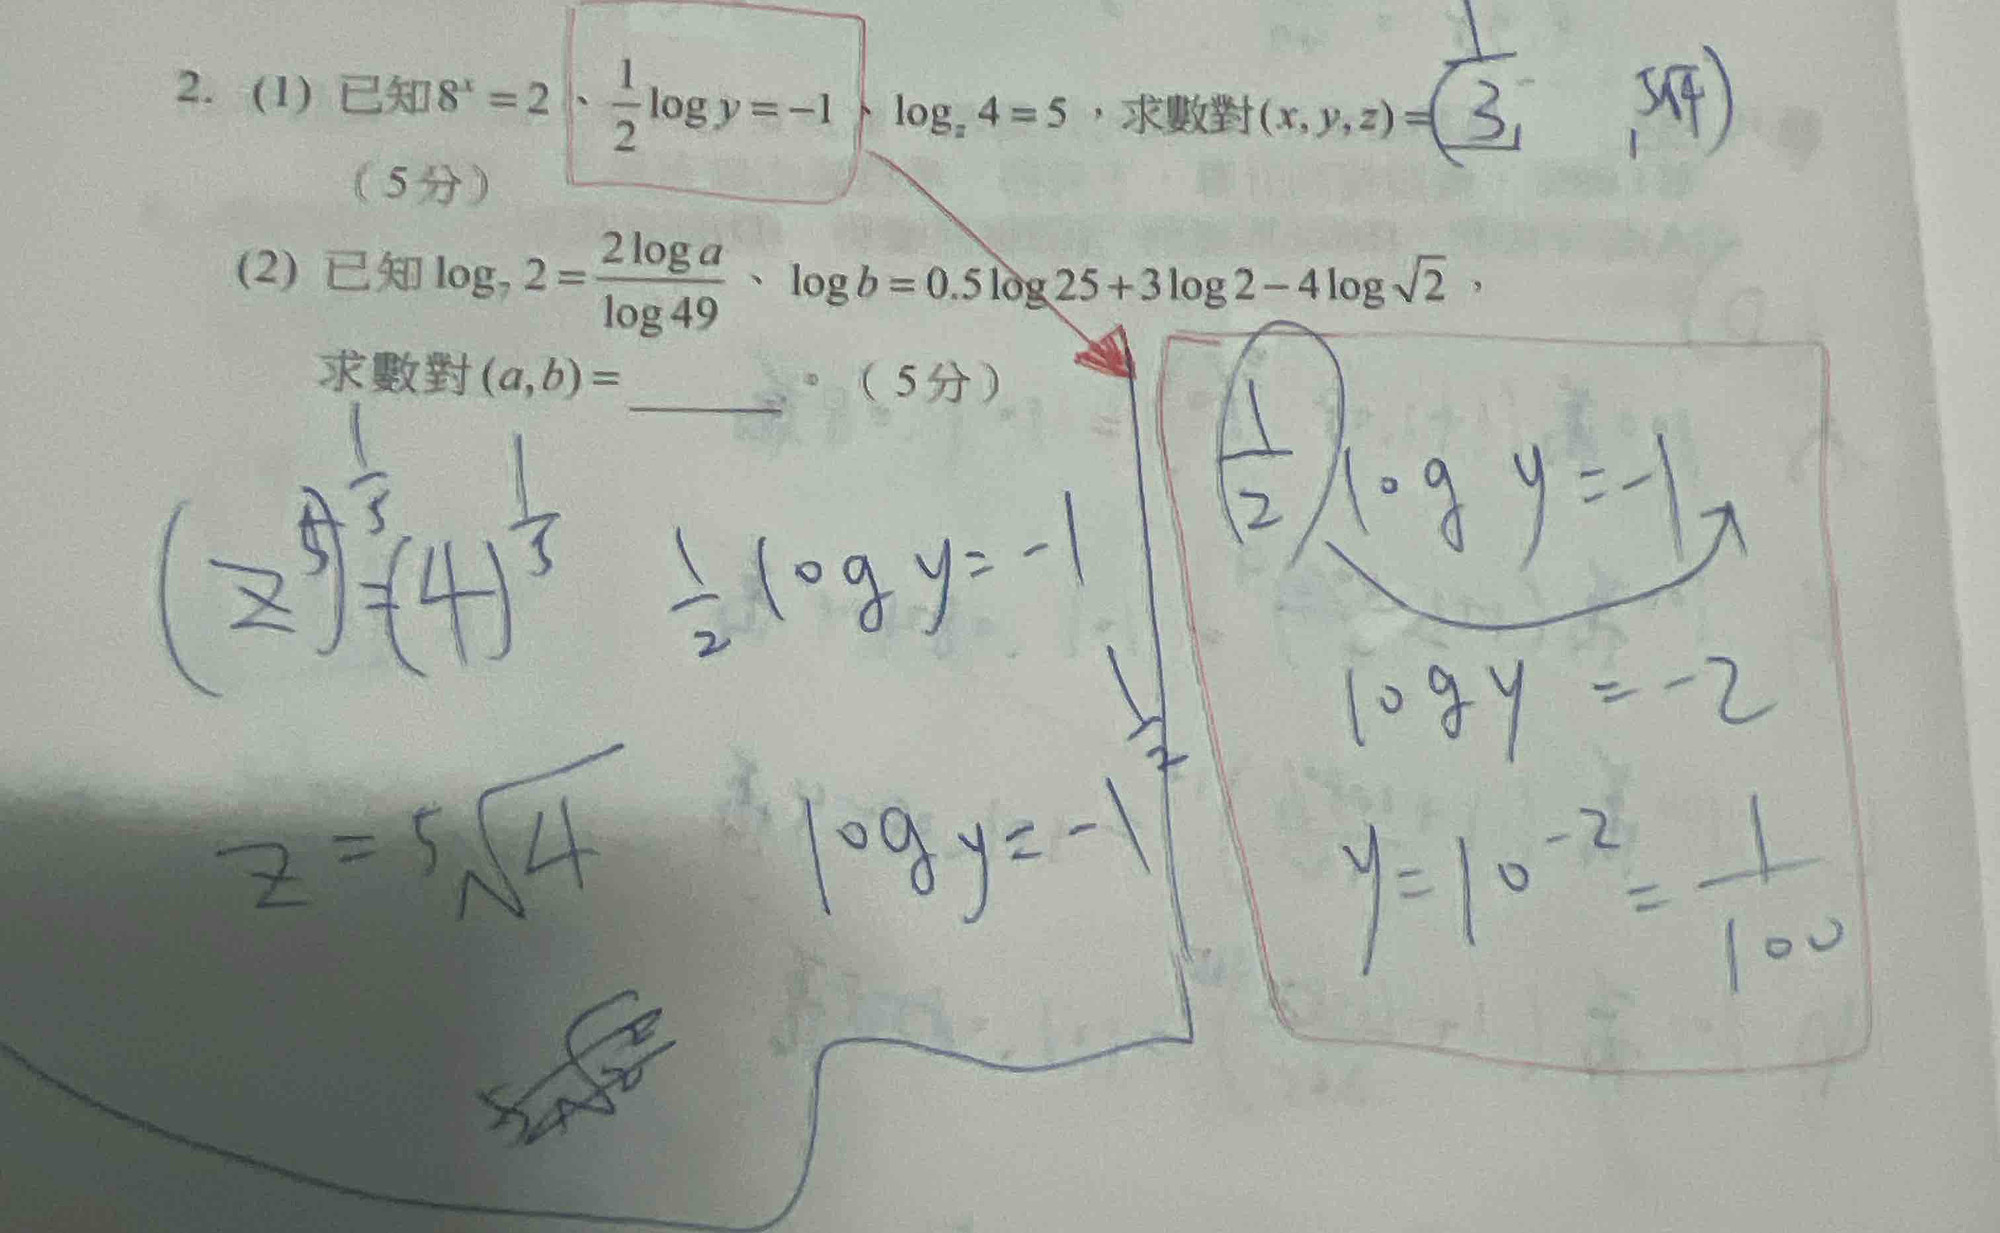 2. (1) 已知8ˣ = 2、1/2 log y = −1、log_z 4 = 5，求數對(x, y, z) = (1/3, , ⁵√4)
（5分）
(2) 已知 log₇ 2 = 2 log a / log 49、log b = 0.5 log 25 + 3 log 2 − 4 log √2，
求數對(a, b) = ______。（5分）
(z⁵)^(1/5) = (4)^(1/5)
z = ⁵√4
1/2 log y = -1
log y = -1 1/2
1/2 log y = -1
log y = -2
y = 10⁻² = 1/100